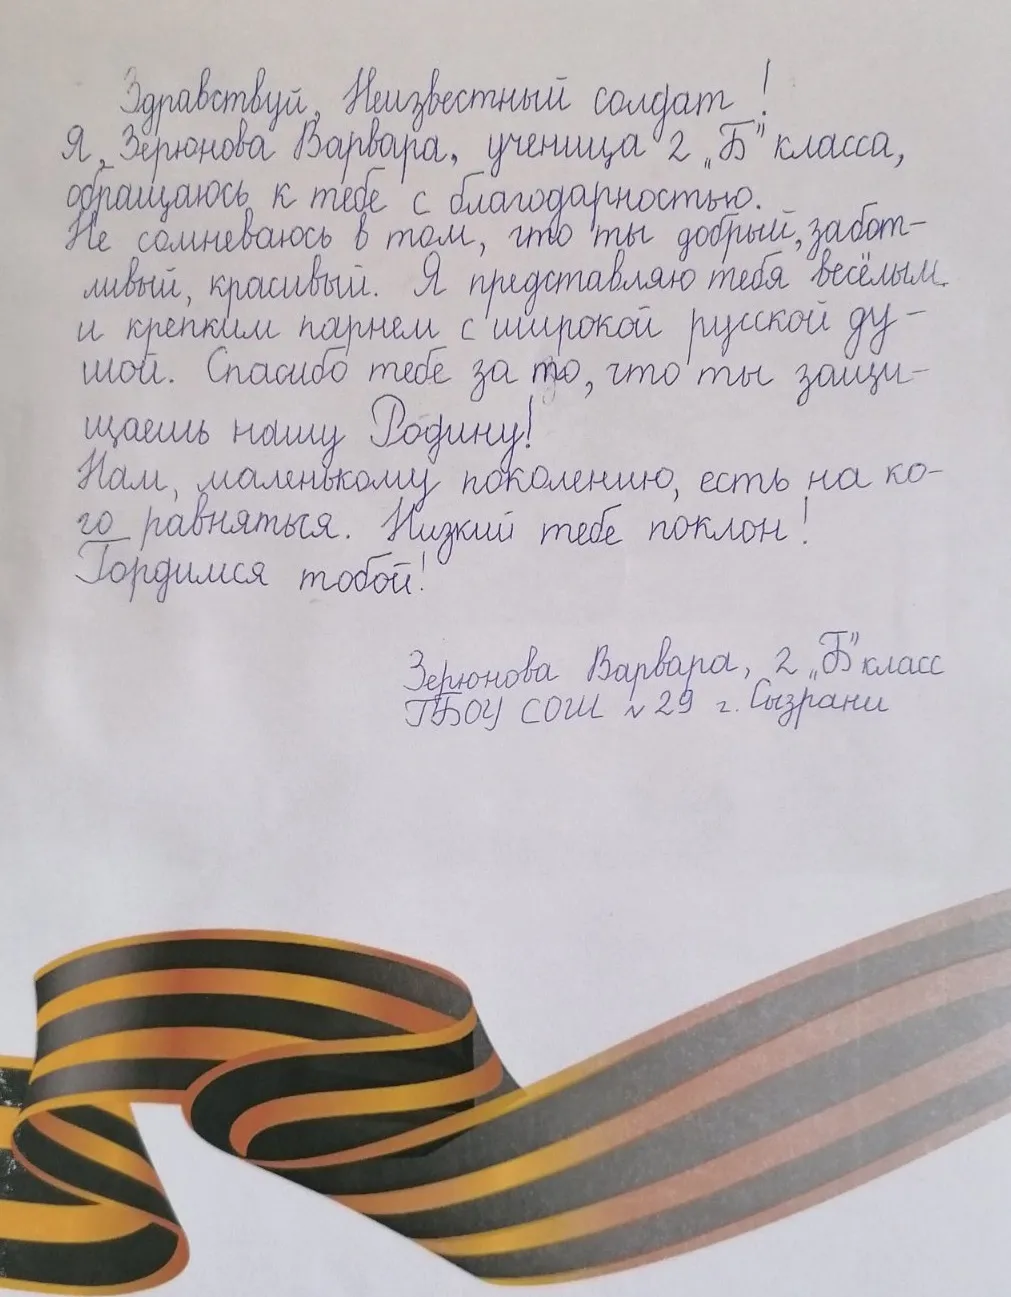 Здравствуй, Неизвестный солдат!
Я, Зерюнова Варвара, ученица 2 „Б" класса,
обращаюсь к тебе с благодарностью.
Не сомневаюсь в том, что ты добрый, забот-
ливый, красивый. Я представляю тебя весёлым
и крепким парнем с широкой русской ду-
шой. Спасибо тебе за то, что ты защи-
щаешь нашу Родину!
Нам, маленькому поколению, есть на ко-
го равняться. Низкий тебе поклон!
Гордимся тобой!
Зерюнова Варвара, 2 „Б" класс
ГБОУ СОШ №29 г. Сызрани